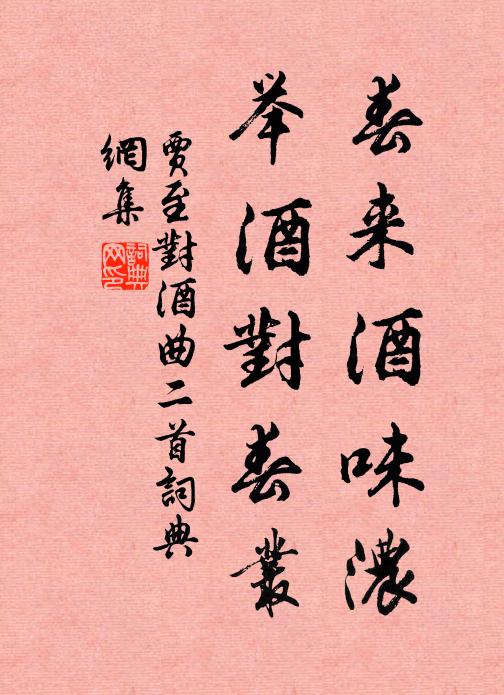 春来酒味濃
举酒對春叢
賈至對酒曲二首詞典
網集
詞典网印